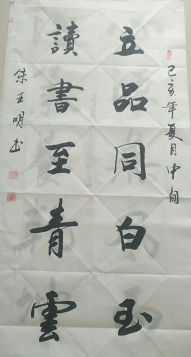 己亥年夏月中旬
立品同白玉
讀書至青雲
朱玉明书